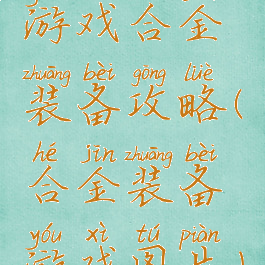 游戏合金
zhuāng bèi gōng lüè
装备攻略(
hé jīn zhuāng bèi
合金装备
yóu xì tú piàn
游戏图片)